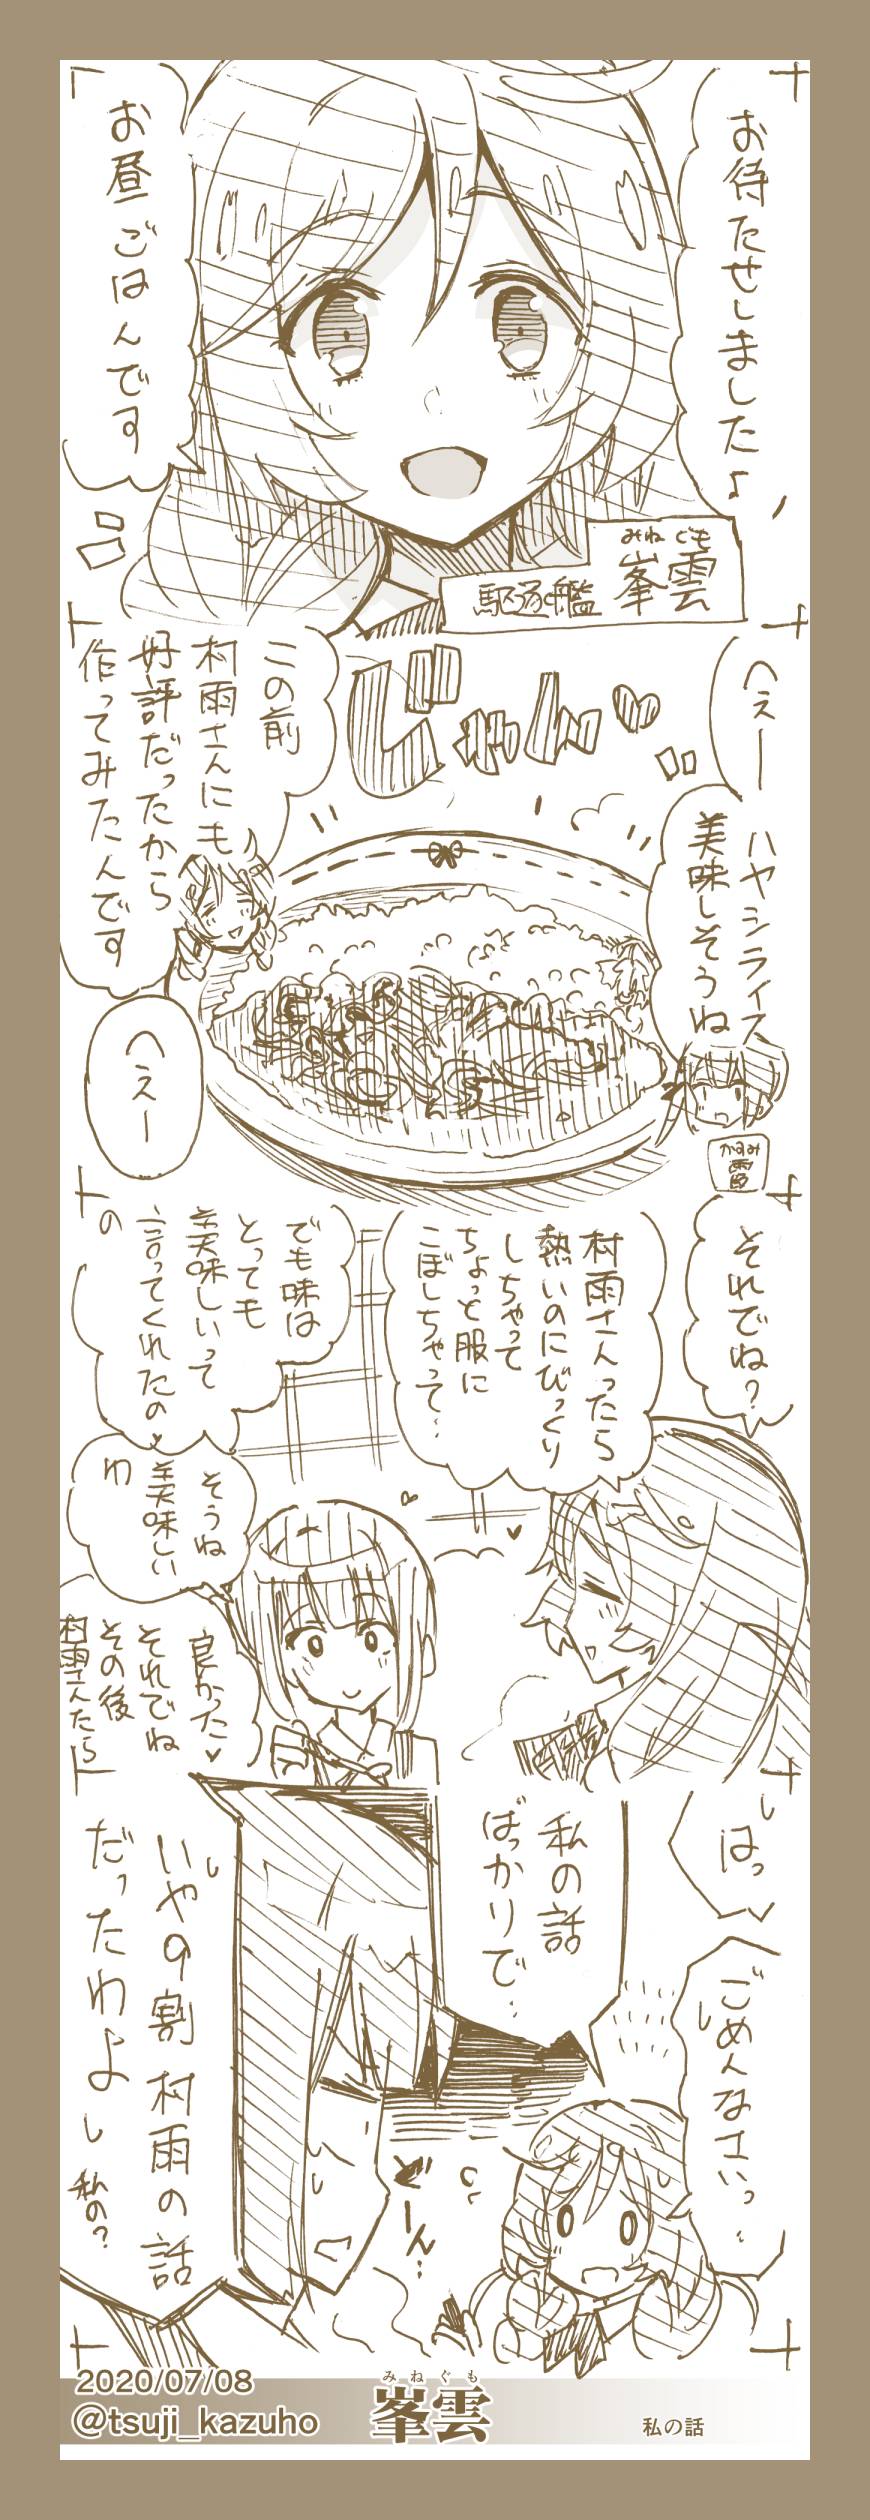 お待たせしました♪
お昼ごはんです
みねぐも
駆逐艦 峯雲
へぇー
ハヤシライス
美味しそうね
かすみ
霞
じゃーん♥
この前
村雨さんにも
好評だったから
作ってみたんです
へぇー
それでね?
村雨さんったら
熱いのにびっくり
しちゃって
ちょっと服に
こぼしちゃって…
でも味は
とっても
美味しいって
言ってくれたの
の
そうね
美味しい
わ
良かった♥
それでね
その後
村雨さんたら
はっ
ごめんなさいっ…
私の話
ばっかりで…
どーん…
いや9割 村雨の話
だったわよ
私の?
2020/07/08
@tsuji_kazuho
みねぐも
峯雲
私の話